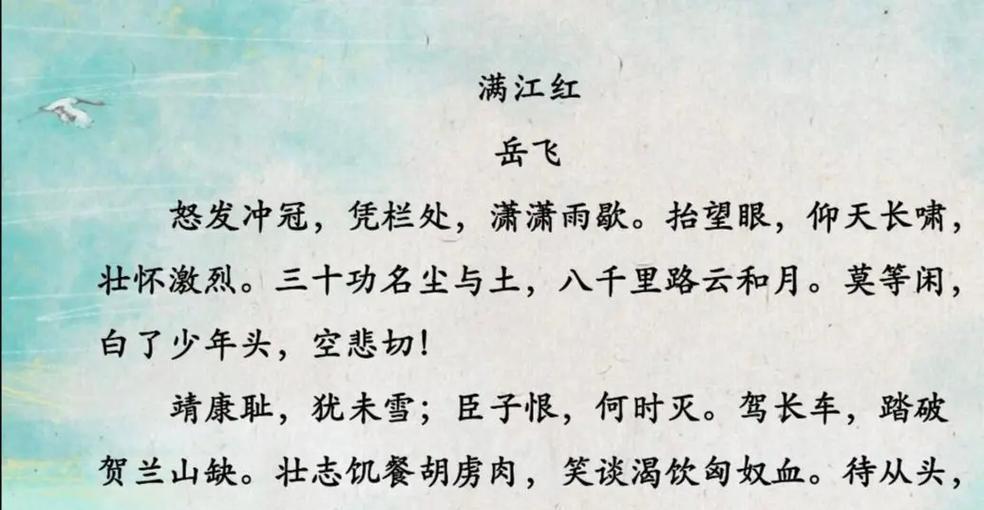 满江红
岳飞
怒发冲冠，凭栏处，潇潇雨歇。抬望眼，仰天长啸，
壮怀激烈。三十功名尘与土，八千里路云和月。莫等闲，
白了少年头，空悲切！
靖康耻，犹未雪；臣子恨，何时灭。驾长车，踏破
贺兰山缺。壮志饥餐胡虏肉，笑谈渴饮匈奴血。待从头，